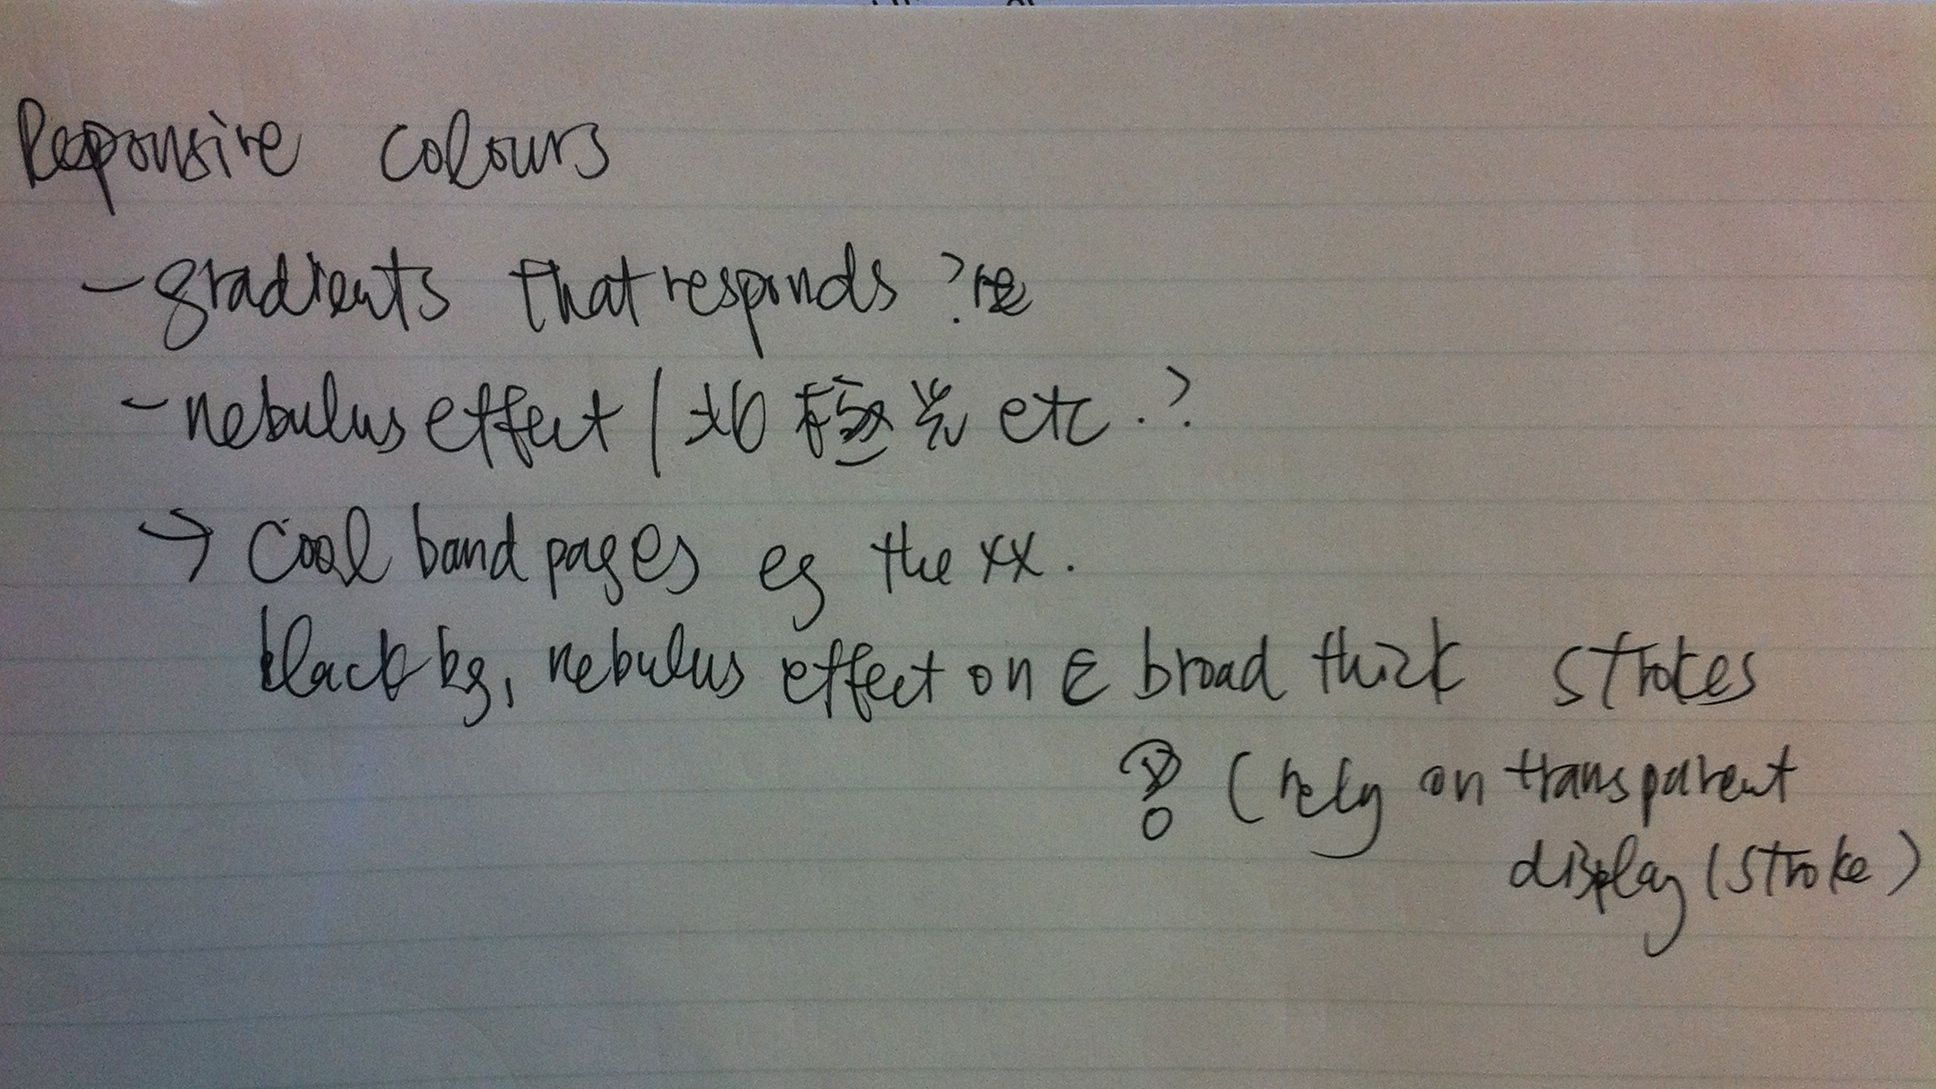 Responsive colours
- gradients that responds ?
- nebulus effect / 北極光 etc.?
→ Cool band pages eg the xx.
black bg, nebulus effect on broad thick strokes
? (rely on transparent
display (stroke)